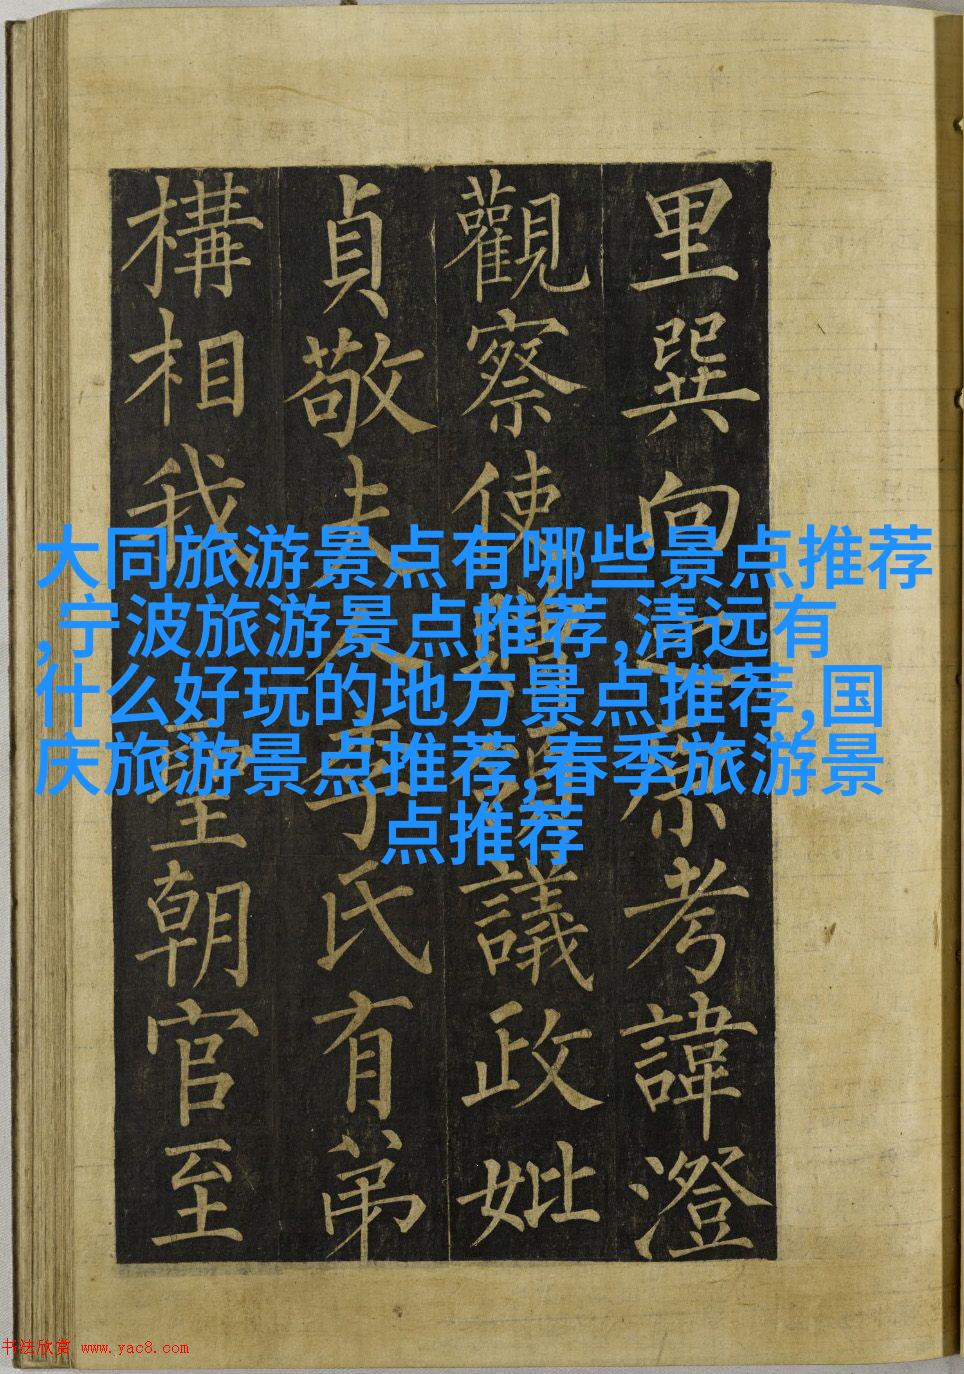 里巽向原考諱澄
觀察使議政妣
貞敬夫人李氏有弟
構相我聖朝官至
大同旅游景点有哪些景点推荐
,宁波旅游景点推荐,清远有
什么好玩的地方景点推荐,国
庆旅游景点推荐,春季旅游景
点推荐
书法欣赏 www.yac8.com